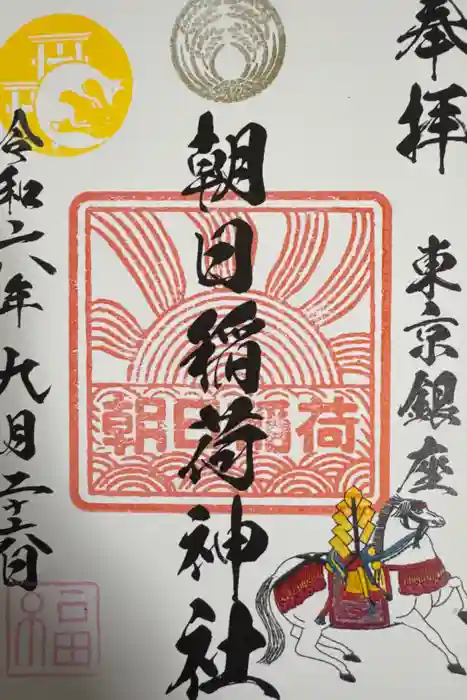 奉拝
東京銀座
朝日稲荷神社
朝日稲荷
令和六年九月二十六日
福